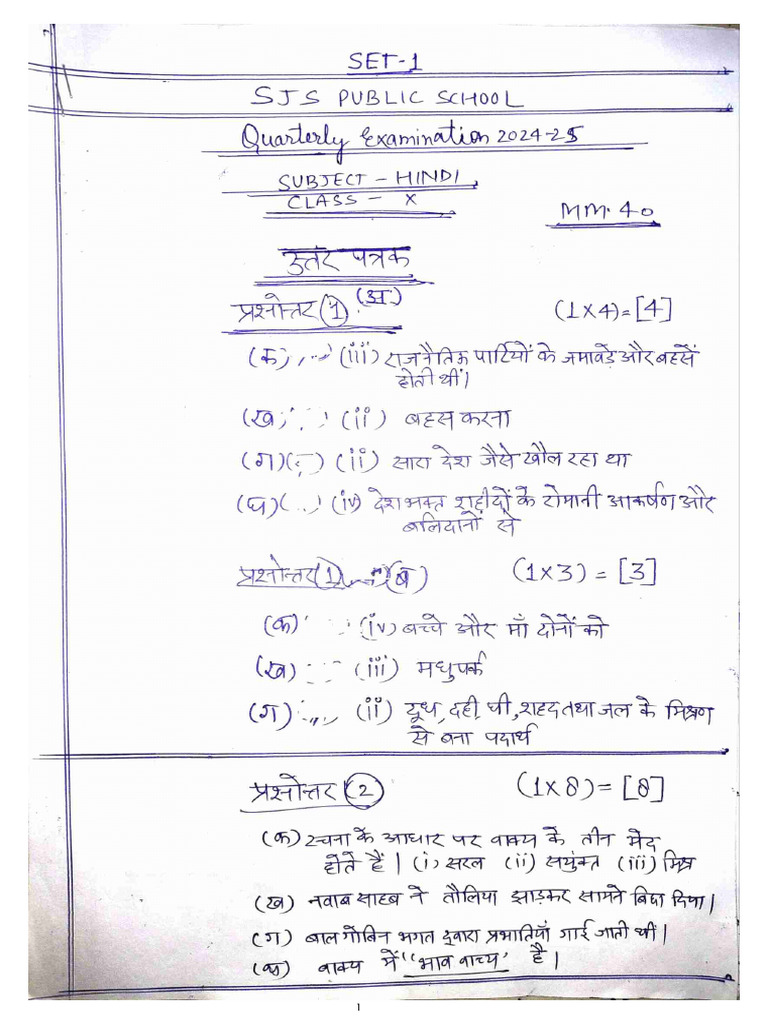 SET-1
SJS PUBLIC SCHOOL
Quarterly Examination 2024-25
SUBJECT - HINDI
CLASS - X
MM. 40
उत्तर पत्रक
प्रश्नोत्तर (1) (अ) (1x4)=[4]
(क) (iii) राजनैतिक पार्टियों के जमावड़े और बहसें
होती थीं।
(ख) (ii) बहस करना
(ग) (ii) सारा देश जैसे खौल रहा था
(घ) (iv) देशभक्त शहीदों के रोमानी आकर्षण और
बलिदानों से
प्रश्नोत्तर (1) (ब) (1x3) = [3]
(क) (iv) बच्चे और माँ दोनों को
(ख) (iii) मधुपर्क
(ग) (ii) दूध, दही, घी, शहद तथा जल के मिश्रण
से बना पदार्थ
प्रश्नोत्तर (2) (1x8)=[8]
(क) रचना के आधार पर वाक्य के तीन भेद
होते हैं। (i) सरल (ii) सयुंक्त (iii) मिश्र
(ख) नवाब साहब ने तौलिया झाड़कर सामने बिछा दिया।
(ग) बाल गोबिन भगत द्वारा प्रभातियाँ गाई जाती थीं।
(घ) वाक्य में "भाव वाच्य" है।
1